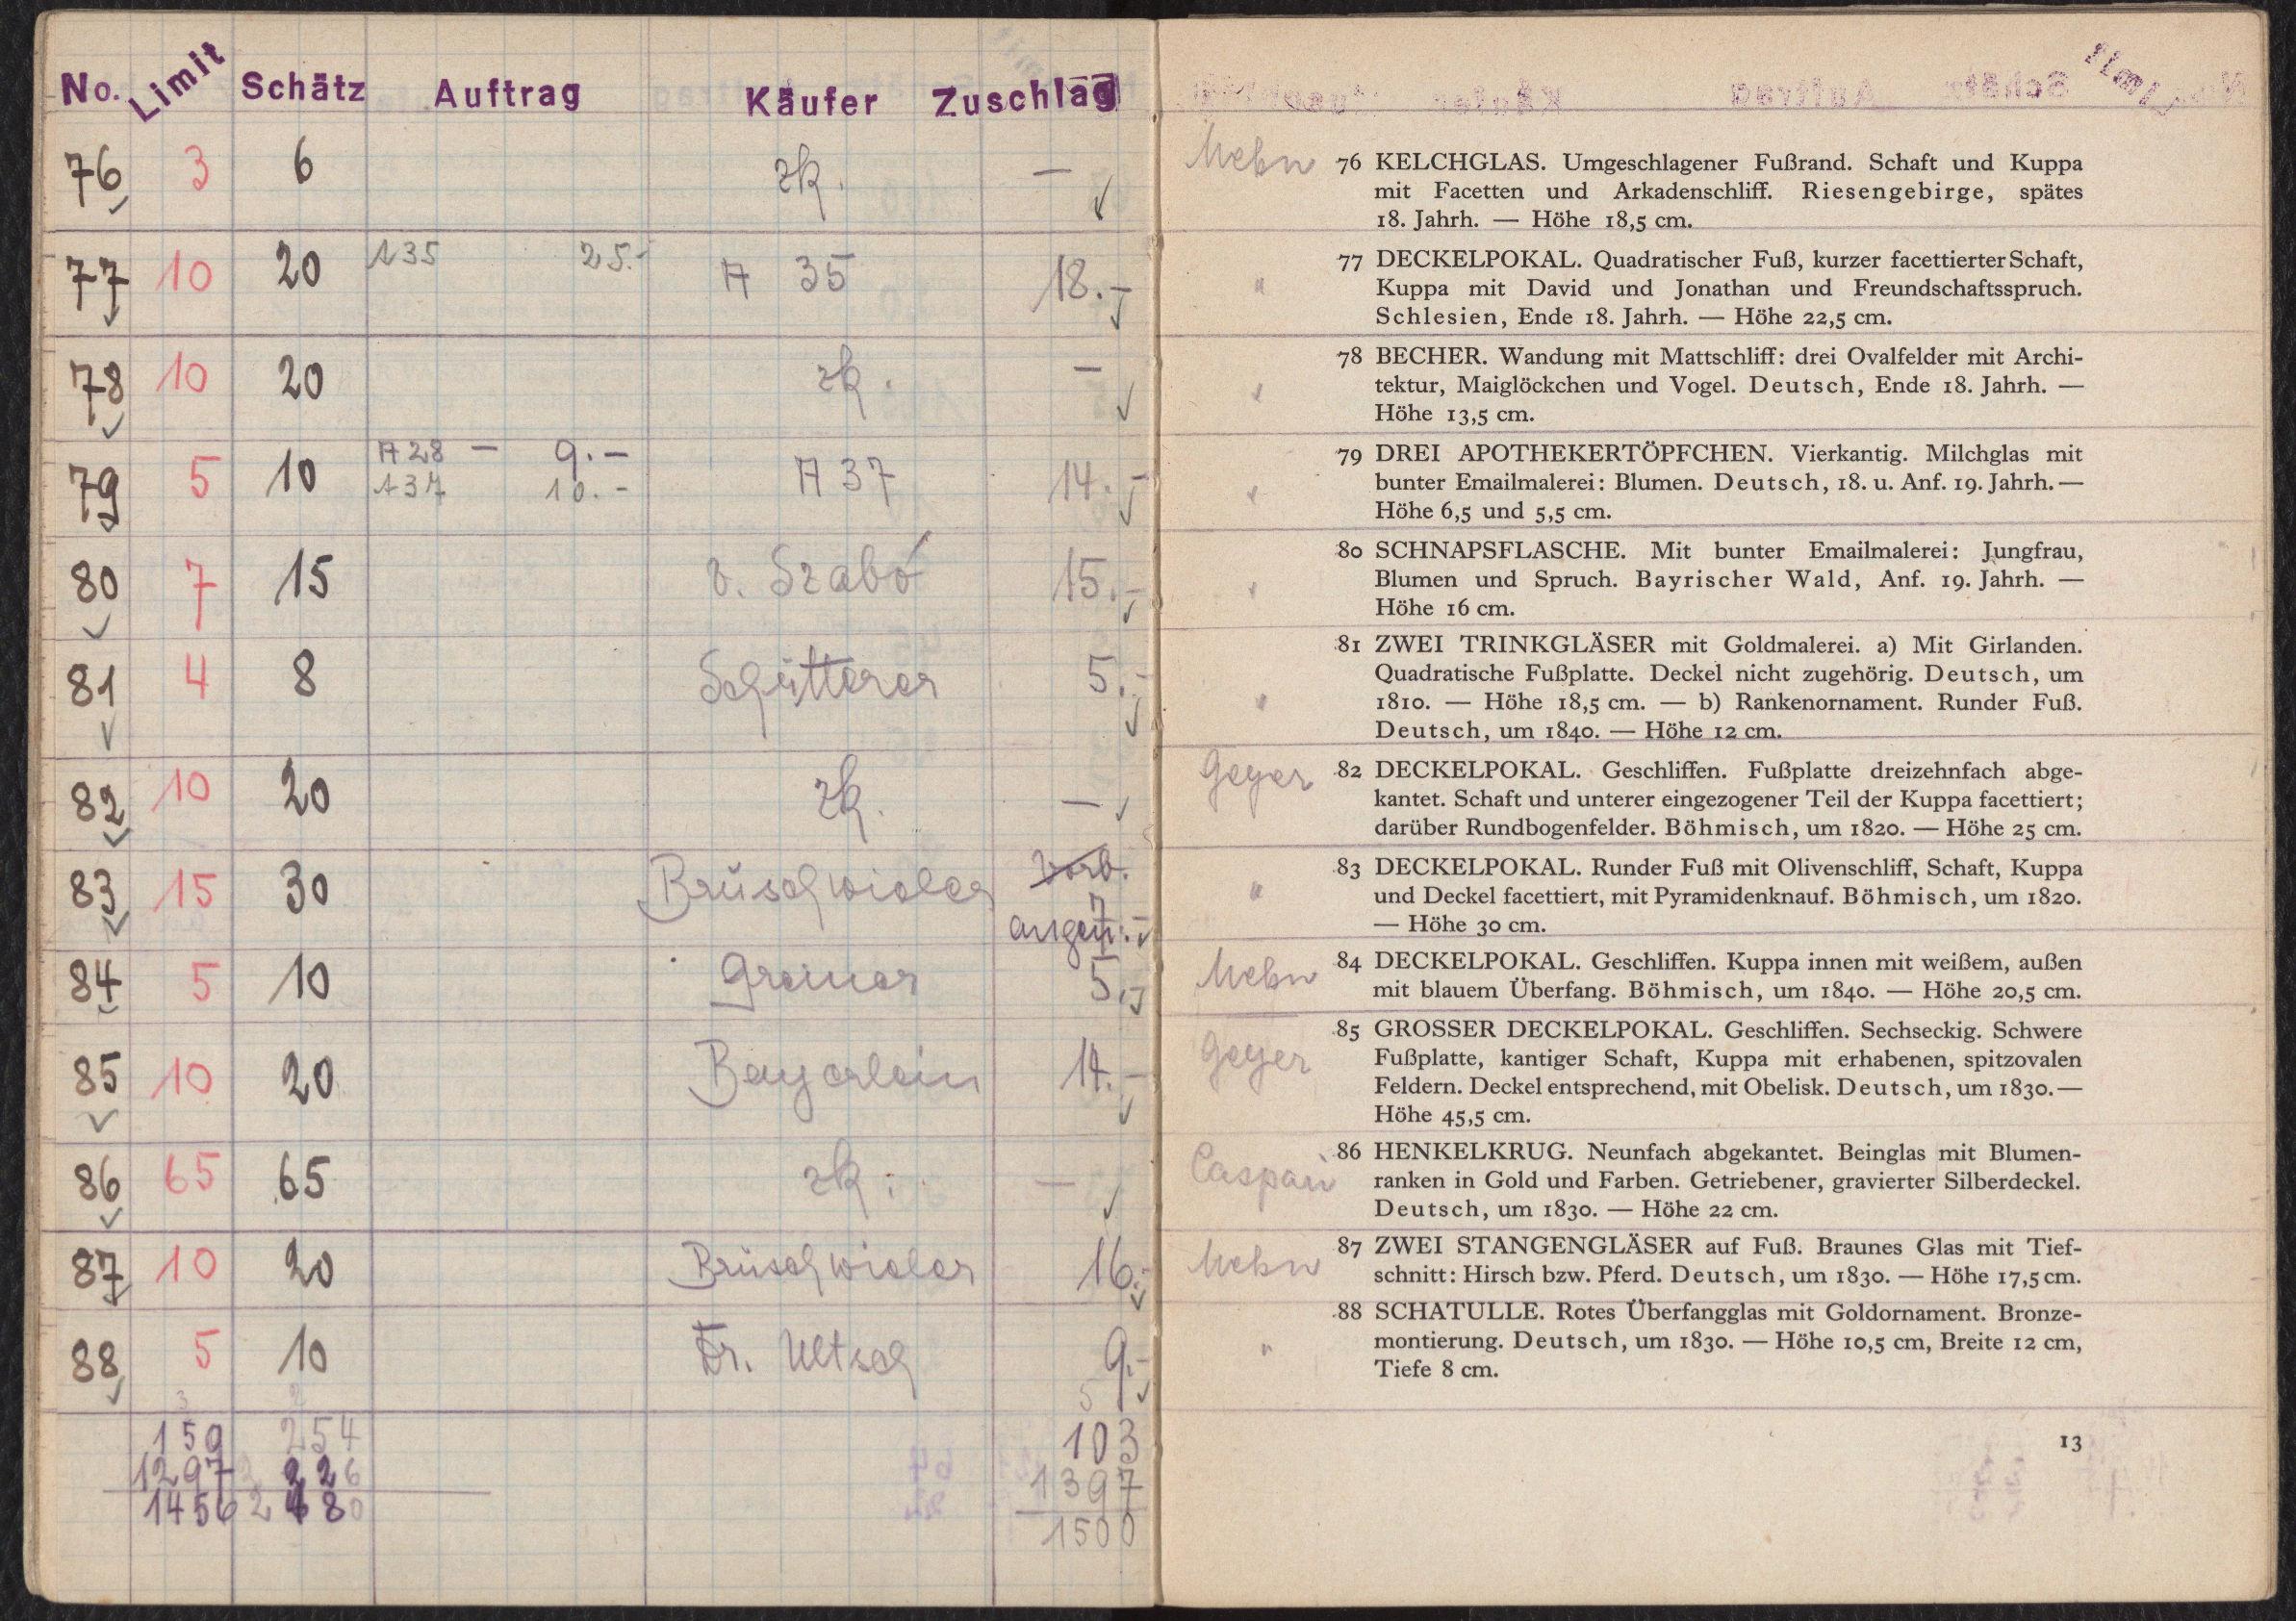 No. Limit Schätz Auftrag Käufer Zuschlag
76 3 6 zk. —
77 10 20 A 35 25.- A 35 18.-
78 10 20 zk. —
79 5 10 A 28 — 9.— A 37 14.-
A 37 10.-
80 7 15 v. Szabó 15.-
81 4 8 5.-
82 10 20 zk. —
83 15 30 Brüschwiler Vorb.
angen. 7.-
84 5 10 Greiner 5.-
85 10 20 Bayerlein 14.-
86 65 65 zk. —
87 10 20 Brüschwiler 16.-
88 5 10 Dr. Ultsch 9.-
159 254 103
1297 1397
1456 2480 1500
76 KELCHGLAS. Umgeschlagener Fußrand. Schaft und Kuppa
mit Facetten und Arkadenschliff. Riesengebirge, spätes
18. Jahrh. — Höhe 18,5 cm.
" 77 DECKELPOKAL. Quadratischer Fuß, kurzer facettierter Schaft,
Kuppa mit David und Jonathan und Freundschaftsspruch.
Schlesien, Ende 18. Jahrh. — Höhe 22,5 cm.
78 BECHER. Wandung mit Mattschliff: drei Ovalfelder mit Archi-
tektur, Maiglöckchen und Vogel. Deutsch, Ende 18. Jahrh. —
Höhe 13,5 cm.
79 DREI APOTHEKERTÖPFCHEN. Vierkantig. Milchglas mit
bunter Emailmalerei: Blumen. Deutsch, 18. u. Anf. 19. Jahrh. —
Höhe 6,5 und 5,5 cm.
80 SCHNAPSFLASCHE. Mit bunter Emailmalerei: Jungfrau,
Blumen und Spruch. Bayrischer Wald, Anf. 19. Jahrh. —
Höhe 16 cm.
81 ZWEI TRINKGLÄSER mit Goldmalerei. a) Mit Girlanden.
Quadratische Fußplatte. Deckel nicht zugehörig. Deutsch, um
1810. — Höhe 18,5 cm. — b) Rankenornament. Runder Fuß.
Deutsch, um 1840. — Höhe 12 cm.
Geyer 82 DECKELPOKAL. Geschliffen. Fußplatte dreizehnfach abge-
kantet. Schaft und unterer eingezogener Teil der Kuppa facettiert;
darüber Rundbogenfelder. Böhmisch, um 1820. — Höhe 25 cm.
" 83 DECKELPOKAL. Runder Fuß mit Olivenschliff, Schaft, Kuppa
und Deckel facettiert, mit Pyramidenknauf. Böhmisch, um 1820.
— Höhe 30 cm.
84 DECKELPOKAL. Geschliffen. Kuppa innen mit weißem, außen
mit blauem Überfang. Böhmisch, um 1840. — Höhe 20,5 cm.
Geyer 85 GROSSER DECKELPOKAL. Geschliffen. Sechseckig. Schwere
Fußplatte, kantiger Schaft, Kuppa mit erhabenen, spitzovalen
Feldern. Deckel entsprechend, mit Obelisk. Deutsch, um 1830. —
Höhe 45,5 cm.
Caspari 86 HENKELKRUG. Neunfach abgekantet. Beinglas mit Blumen-
ranken in Gold und Farben. Getriebener, gravierter Silberdeckel.
Deutsch, um 1830. — Höhe 22 cm.
87 ZWEI STANGENGLÄSER auf Fuß. Braunes Glas mit Tief-
schnitt: Hirsch bzw. Pferd. Deutsch, um 1830. — Höhe 17,5 cm.
" 88 SCHATULLE. Rotes Überfangglas mit Goldornament. Bronze-
montierung. Deutsch, um 1830. — Höhe 10,5 cm, Breite 12 cm,
Tiefe 8 cm.
13